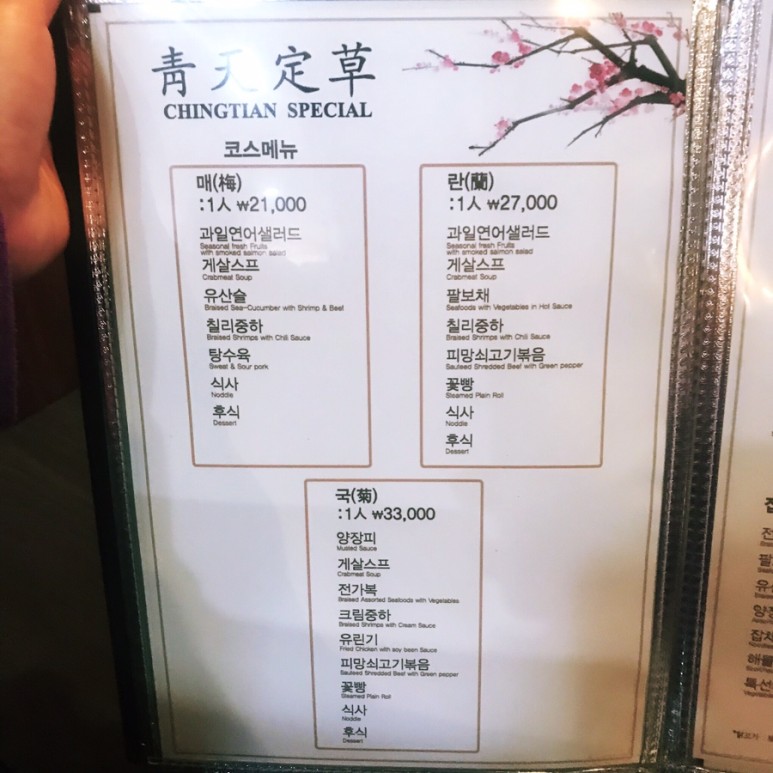 靑天定草
CHINGTIAN SPECIAL
코스메뉴
매(梅)
:1人 ₩21,000
과일연어샐러드
Seasonal fresh Fruits
with smoked salmon salad
게살스프
Crabmeat Soup
유산슬
Braised Sea-Cucumber with Shrimp & Beef
칠리중하
Braised Shrimps with Chili Sauce
탕수육
Sweat & Sour pork
식사
Noddle
후식
Dessert
란(蘭)
:1人 ₩27,000
과일연어샐러드
Seasonal fresh Fruits
with smoked salmon salad
게살스프
Crabmeat Soup
팔보채
Seafoods with Vegetables in Hot Sauce
칠리중하
Braised Shrimps with Chili Sauce
피망쇠고기볶음
Sauteed Shredded Beef with Green pepper
꽃빵
Steamed Plain Roll
식사
Noddle
후식
Dessert
국(菊)
:1人 ₩33,000
양장피
Musted Sauce
게살스프
Crabmeat Soup
전가복
Braised Assorted Seafoods with Vegetables
크림중하
Braised Shrimps with Cream Sauce
유린기
Fried Chicken with soy been Sauce
피망쇠고기볶음
Sauteed Shredded Beef with Green pepper
꽃빵
Steamed Plain Roll
식사
Noddle
후식
Dessert